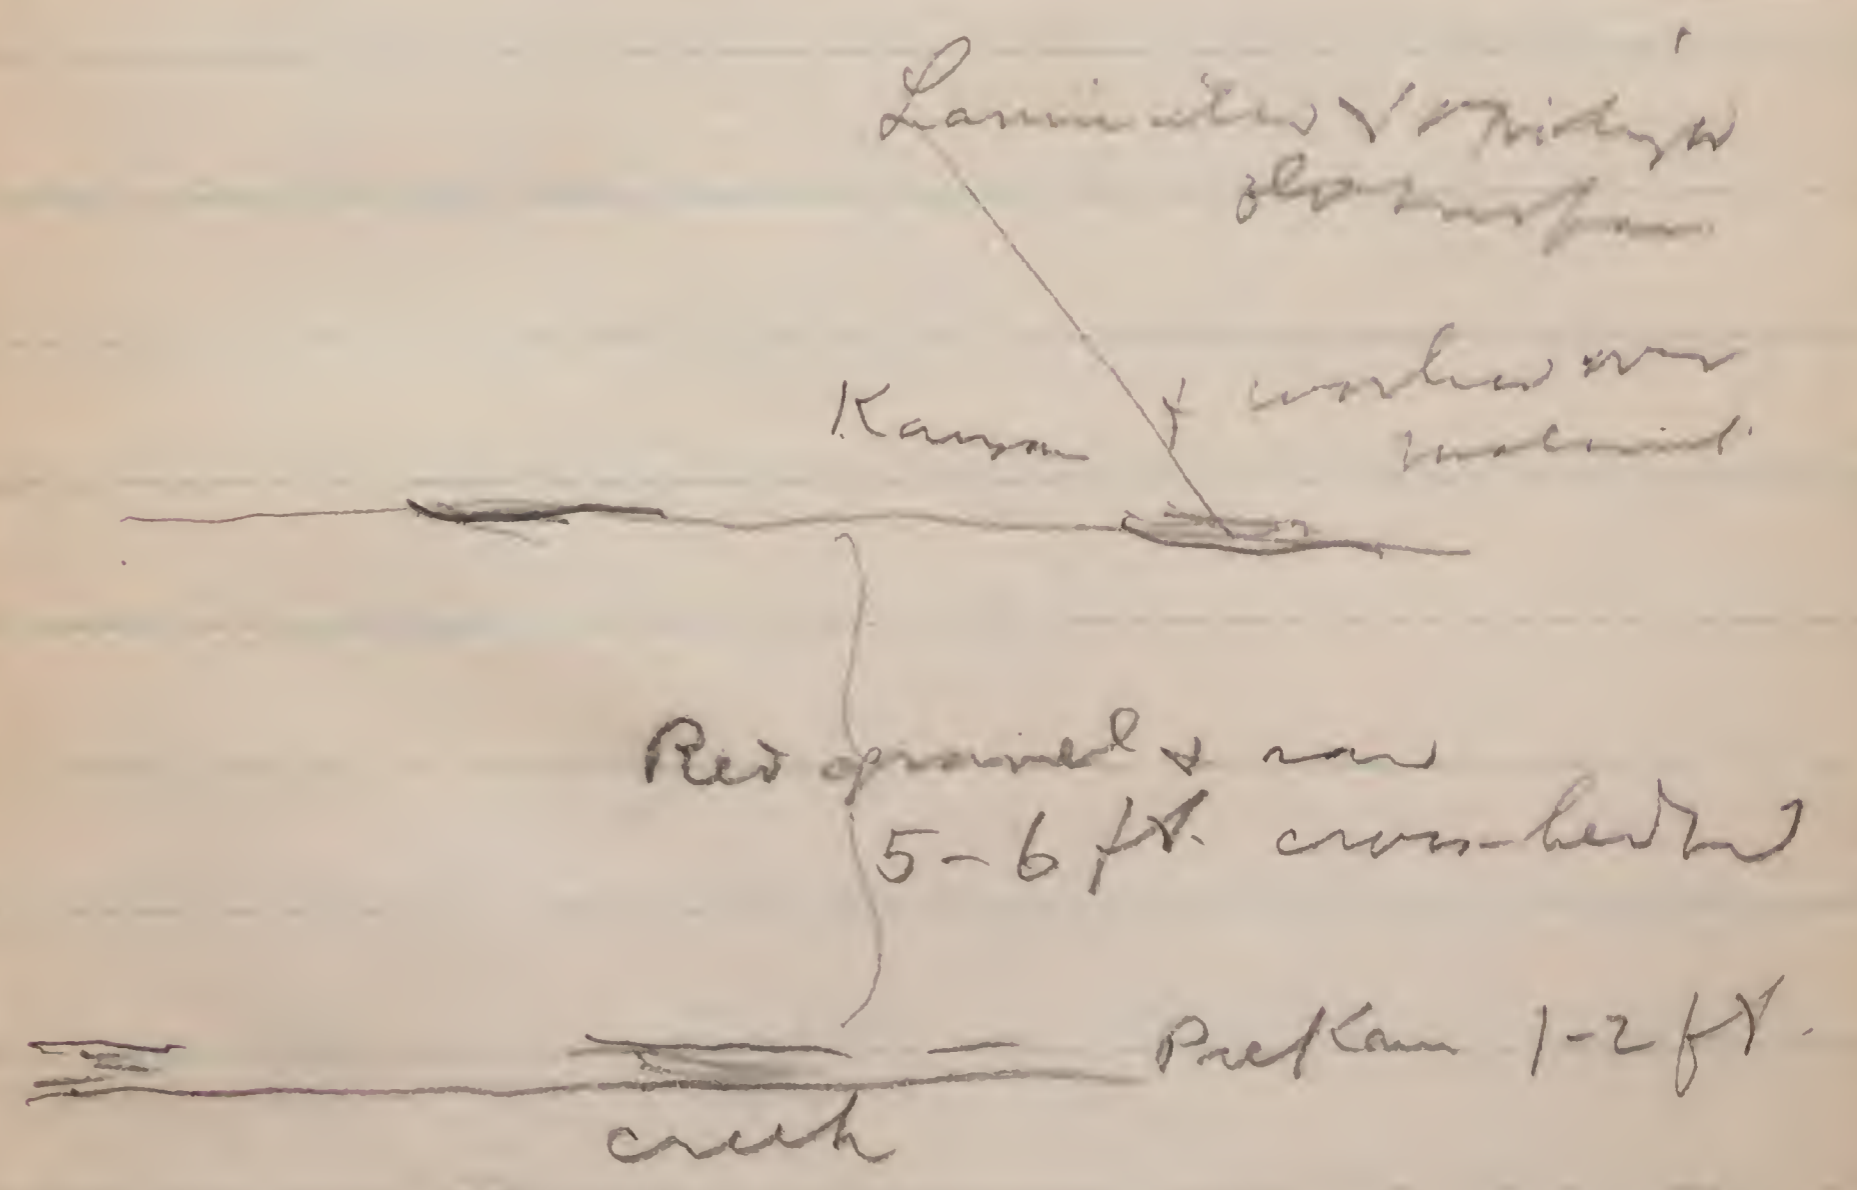 Laminated &
Kansan & worked over
material
Red gravel & sand
5-6 ft. cross-bedded
Pre Kan 1-2 ft.
creek